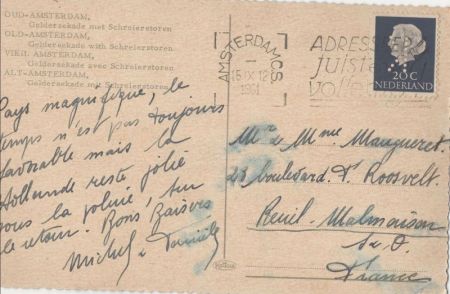 OUD-AMSTERDAM,
Geldersekade met Schreierstoren
OLD-AMSTERDAM,
Geldersekade with Schreierstoren
VIEIL AMSTERDAM,
Geldersekade avec Schreierstoren
ALT-AMSTERDAM,
Geldersekade mit Schreierstoren
Pays magnifique, le
temps n'est pas toujours
favorable mais la
Hollande reste jolie
sous la pluie
le retour. Bons Baisers
Michel &
AMSTERDAM C.S.
15 IX 12
1961
ADRESSEER
juist
volle
20c
NEDERLAND
Mr & Mme Maugueret
boulevard F. Roosvelt.
Reuil-Malmaison
S & O.
France